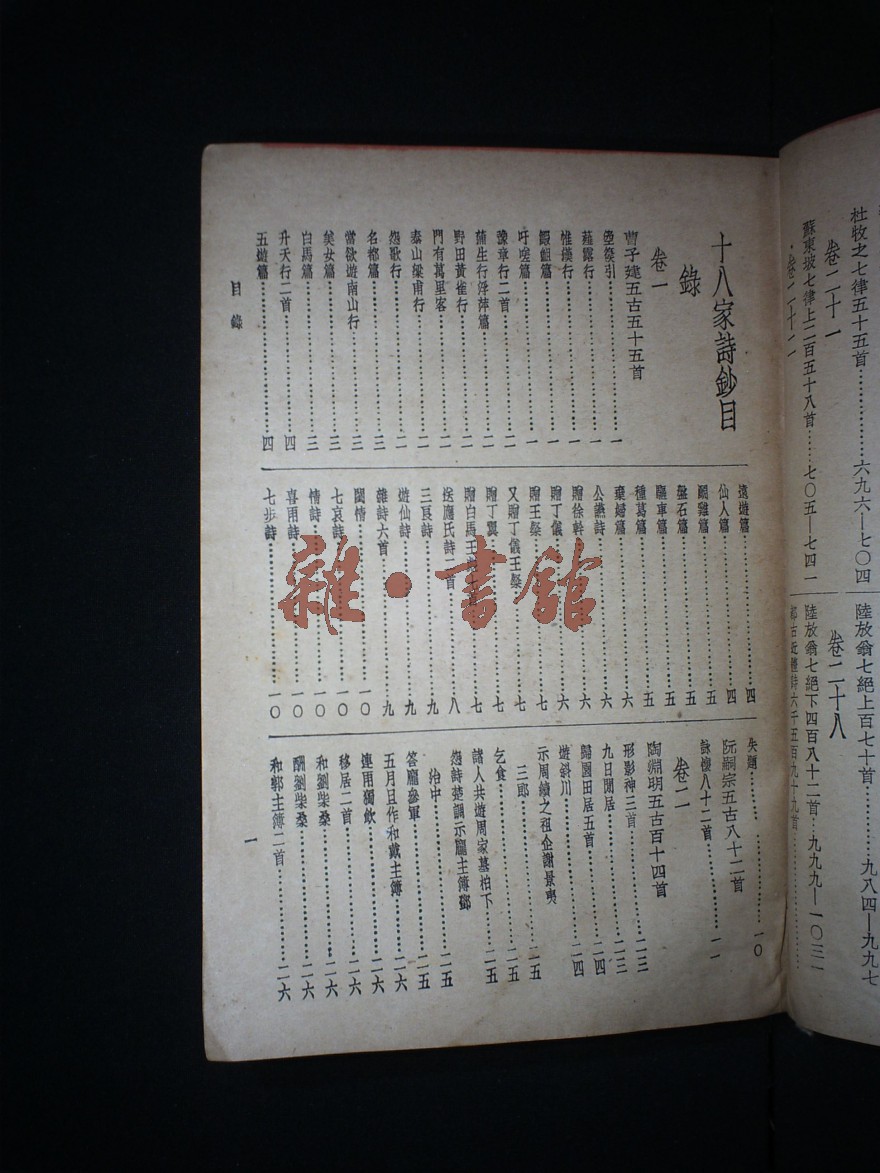 杜牧之七律五十五首……六九六—七〇四
卷二十一
蘇東坡七律上二百五十八首……七〇五—七四二
卷二十二
陸放翁七絕上百七十首……九八四—九九七
卷二十八
陸放翁七絕下四百八十二首…九九九—一〇三一
都古近體詩六千五百九十九首
十八家詩鈔目
錄
卷一
曹子建五古五十五首
箜篌引……一
薤露行……一
惟漢行……一
鰕䱇篇……一
吁嗟篇……一
豫章行二首……二
蒲生行浮萍篇……二
野田黃雀行……二
門有萬里客……二
泰山梁甫行……二
怨歌行……二
名都篇……三
當欲遊南山行……三
美女篇……三
白馬篇……三
升天行二首……四
五遊篇……四
遠遊篇……四
仙人篇……四
鬭雞篇……五
盤石篇……五
驅車篇……五
種葛篇……五
棄婦篇……六
公讌詩……六
贈徐幹……六
贈丁儀……六
贈王粲……七
又贈丁儀王粲……七
贈丁翼……七
贈白馬王……七
送應氏詩二首……八
三良詩……九
遊仙詩……九
雜詩六首……九
閨情……一〇
七哀詩……一〇
情詩……一〇
喜雨詩……一〇
七步詩……一〇
失題……一〇
阮嗣宗五古八十二首
詠懷八十二首……一一
卷二
陶淵明五古百十四首
形影神三首……二三
九日閒居……二三
歸園田居五首……二四
遊斜川……二四
示周續之祖企謝景夷
三郎……二五
乞食……二五
諸人共遊周家墓柏下……二五
怨詩楚調示龐主簿鄧
治中……二五
答龐參軍……二五
五月旦作和戴主簿……二六
連雨獨飲……二六
移居二首……二六
和劉柴桑……二六
酬劉柴桑……二六
和郭主簿二首……二六
目錄
一
雜·書館